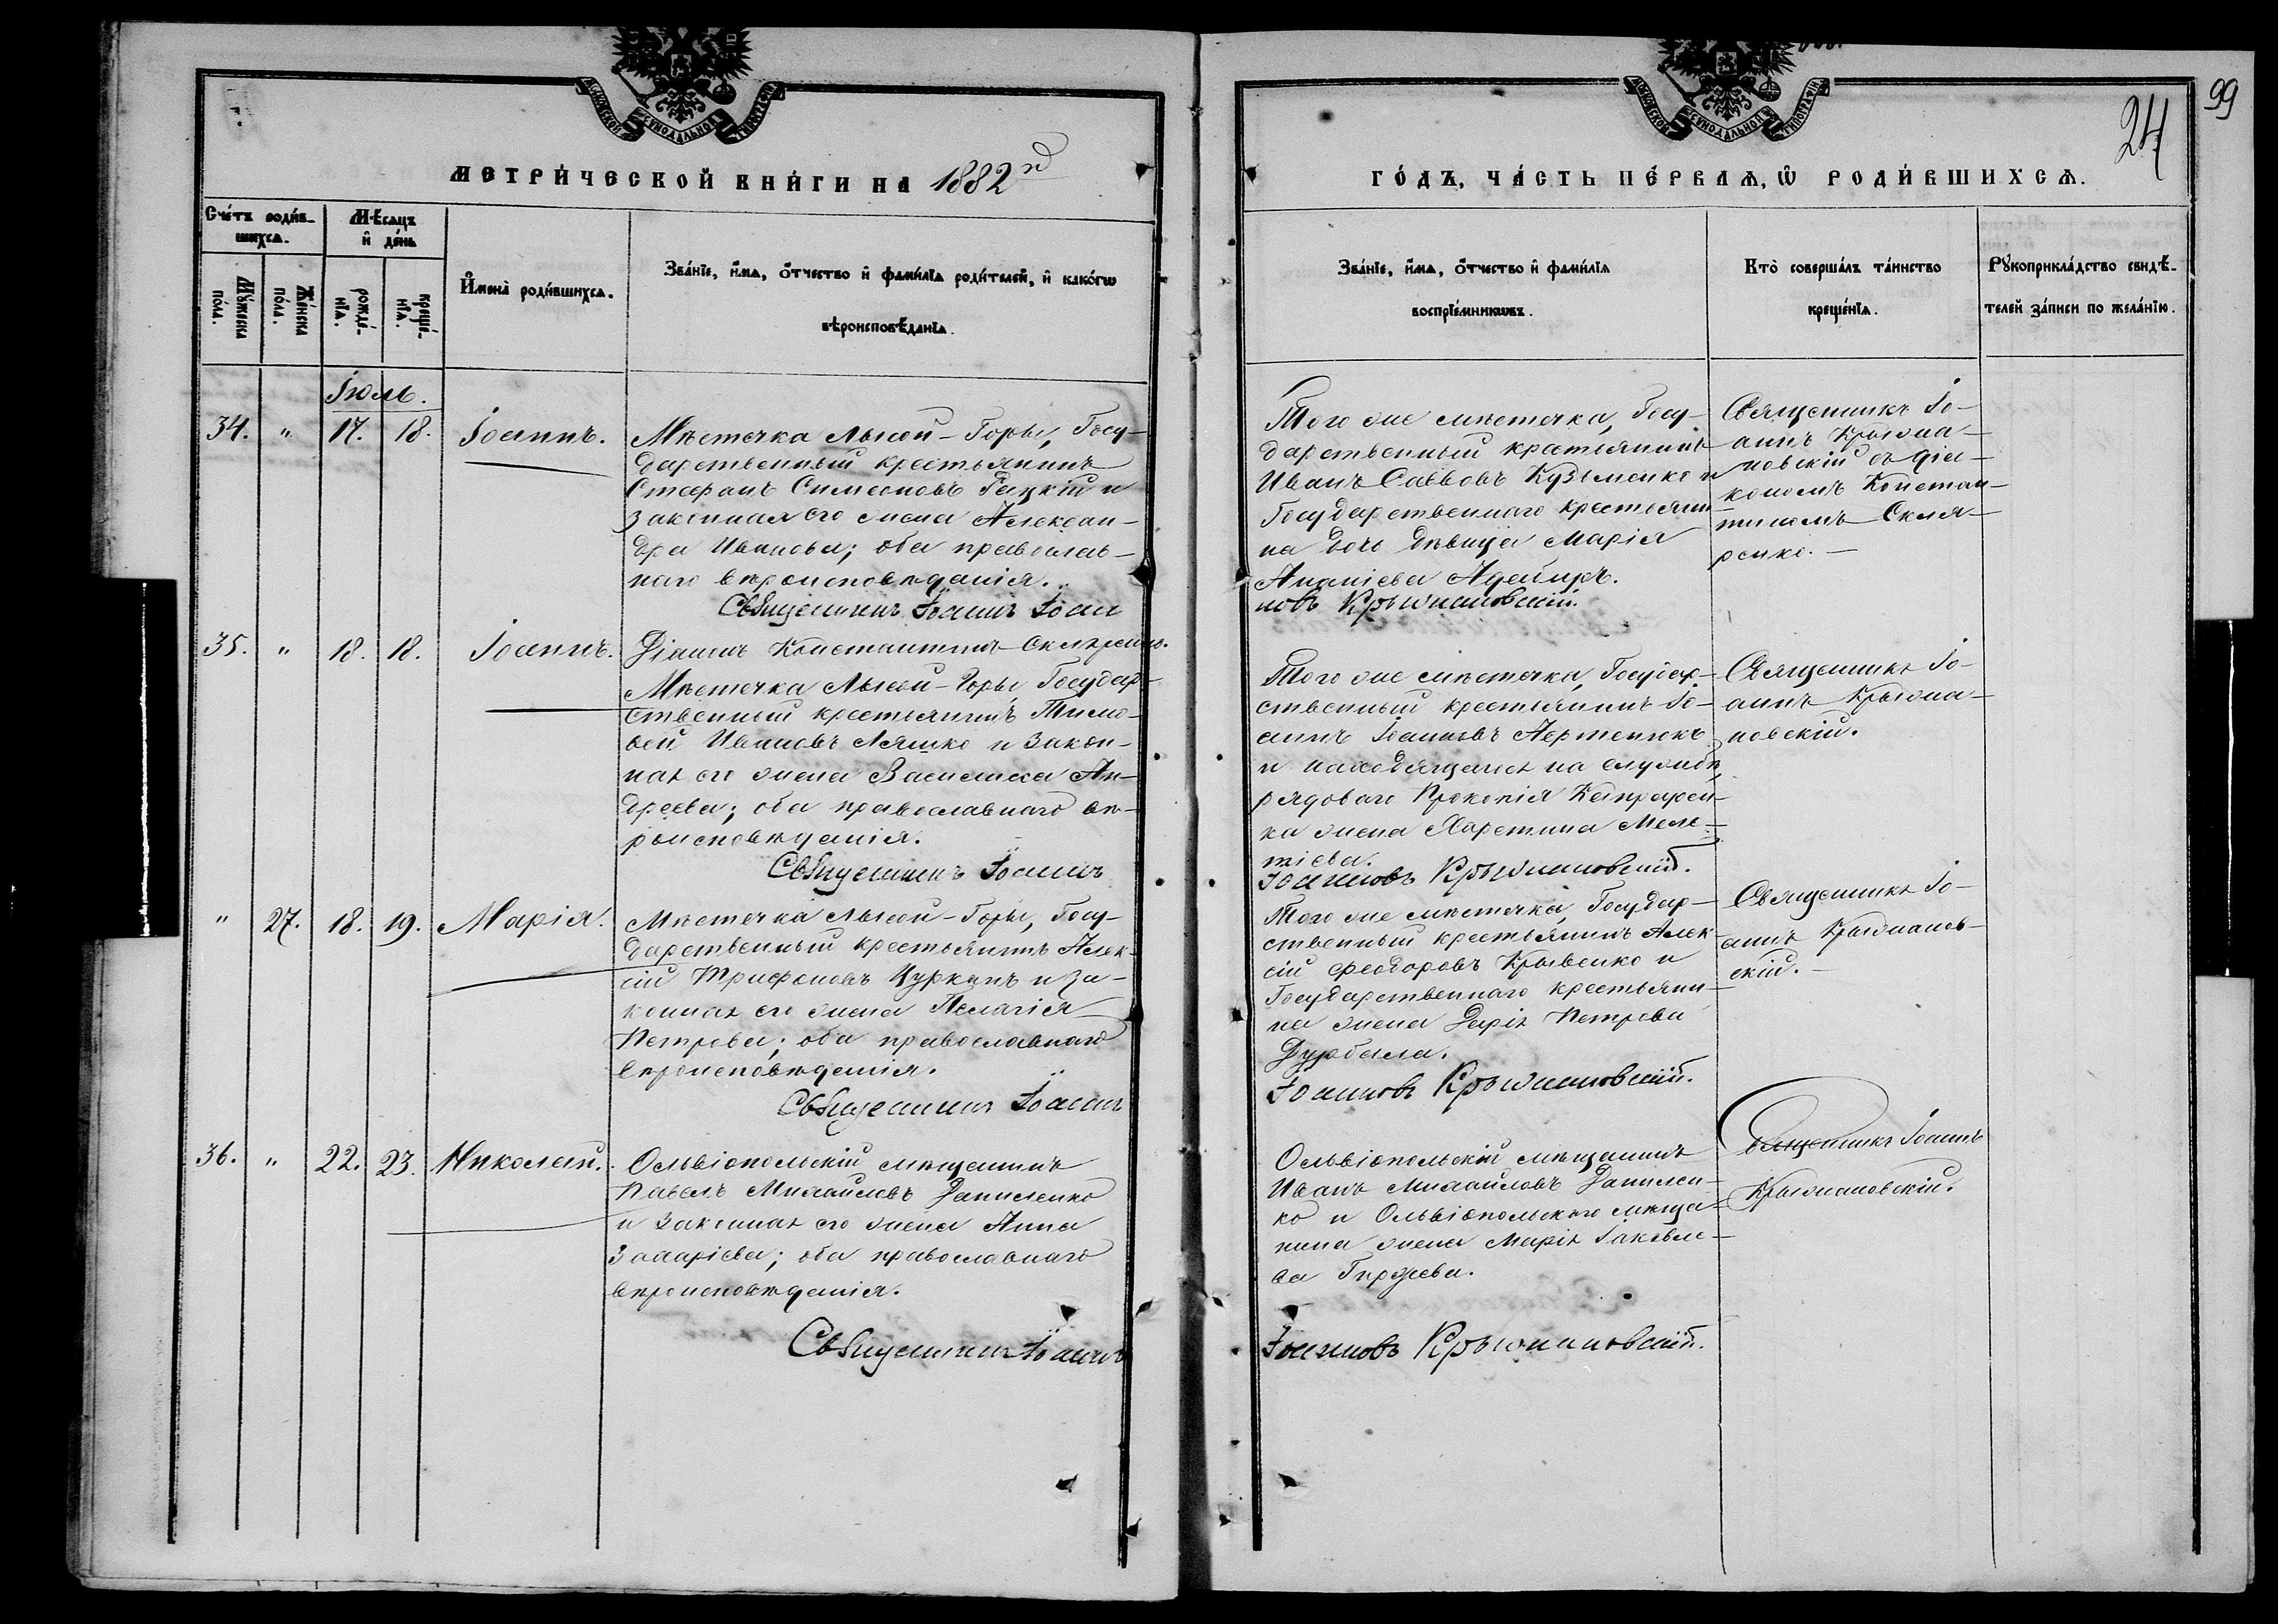 99
24
МОСКОВСКОЙ СѴНОДАЛЬНОЙ ТИПОГРАФІИ
МЕТРИ́ЧЕСКОЙ КНИ́ГИ НА 1882й
Сче́тъ роди́в-
шихсѧ.
Мѣ́сѧцъ
и҆ де́нь
И҆мена̀ роди́вшихсѧ.
Зва́нїе, и҆́мѧ, ѻ҆́тчество и҆ фами́лїѧ роди́телей, и҆ како́гѡ
вѣроисповѣ́данїѧ.
Мꙋ́жеска
по́ла.
Же́нска
по́ла.
рожде́-
нїѧ.
креще́-
нїѧ.
Іюль.
34.
"
17.
18.
Іоаннъ.
Мѣстечка Лысой-Горы, Госу-
дарственный крестьянинъ
Стефанъ Симеоновъ Гацкій и
законная его жена Александ-
дра Иванова; оба православ-
наго вѣроисповѣданія.
Священникъ Іоаннъ Іоан
35.
"
18.
18.
Іоаннъ.
Діаконъ Константинъ Скляренко.
Мѣстечка Лысой-Горы Государ-
ственный крестьянинъ Тимо-
фей Ивановъ Ляшко и закон-
ная его жена Василиса Ан-
дреева; оба православнаго вѣ-
роисповѣданія.
Священникъ Іоаннъ
"
27.
18.
19.
Марія.
Мѣстечка Лысой-Горы, Госу-
дарственный крестьянинъ Алек-
сій Трифоновъ Цурканъ и за-
конная его жена Пелагія
Петрова; оба православнаго
вѣроисповѣданія.
Священникъ Іоаннъ
36.
"
22.
23.
Николай.
Ольвіопольскій мѣщанинъ
Павелъ Михайловъ Даниленко
и законная его жена Анна
Захаріева; оба православнаго
вѣроисповѣданія.
Священникъ Іоаннъ
МОСКОВСКОЙ СѴНОДАЛЬНОЙ ТИПОГРАФІИ
ГО́ДЪ, ЧА́СТЬ ПЕ́РВАѦ, Ѡ҆ РОДИ́ВШИХСѦ.
Зва́нїе, и҆́мѧ, ѻ҆́тчество и҆ фами́лїѧ
воспрїе́мникѡвъ.
Кто̀ соверша́лъ та́инство
креще́нїѧ.
Рꙋкоприкла́дство свидѣ́-
телей за́писи по жела́нїю.
Того же мѣстечка, Госу-
дарственный крестьянинъ
Иванъ Саввовъ Кузьменко и
Государственнаго крестьяни-
на дочь дѣвица Марія
Ананіева
новъ Крыжановскій.
Священникъ Іо-
аннъ Крыжа-
новскій съ діа-
кономъ Констан-
тиномъ Скля-
ренко.
Того же мѣстечка, Государ-
ственный крестьянинъ Іо-
аннъ Іоанновъ
и находящагося на службѣ
рядоваго Прокопія
ка жена Харитина Меле-
тіева.
Іоанновъ Крыжановскій.
Священникъ Іо-
аннъ Крыжа-
новскій.
Того же мѣстечка, Государ-
ственный крестьянинъ Алек-
сій Феодоровъ Крывенко и
Государственнаго крестьяни-
на жена Дарія Петрова
Дурбала.
Іоанновъ Крыжановскій.
Священникъ Іо-
аннъ Крыжанов-
скій.
Ольвіопольскій мѣщанинъ
Иванъ Михайловъ Данилен-
ко и Ольвіопольскаго мѣща-
нина жена Марія Іаковле-
ва
Іоанновъ Крыжановскій.
Священникъ Іоаннъ
Крыжановскій.